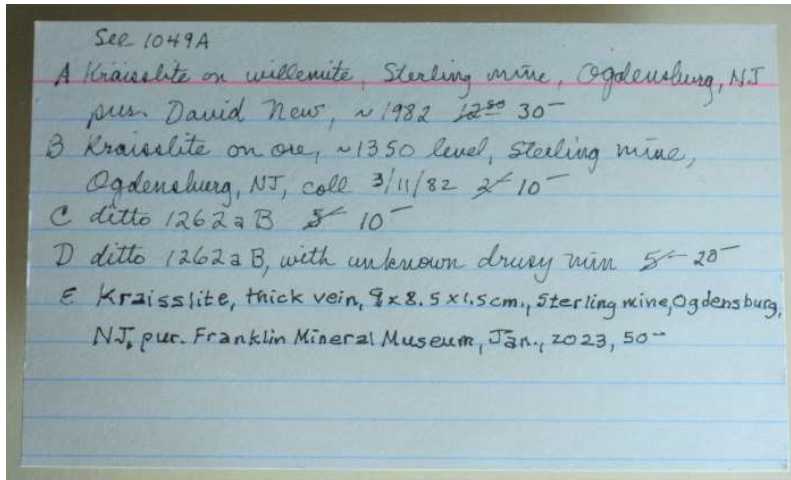 See 1049A
A Kraisslite on willemite, Sterling mine, Ogdensburg, NJ
pur. David New, ~1982 1250 30-
B Kraisslite on ore, ~1350 level, Sterling mine,
Ogdensburg, NJ, coll 3/11/82 2- 10-
C ditto 1262a B 5- 10-
D ditto 1262a B, with unknown drusy min 5- 20-
E Kraisslite, thick vein, 9x8.5x1.5cm., Sterling mine, Ogdensburg,
NJ, pur. Franklin Mineral Museum, Jan., 2023, 50-